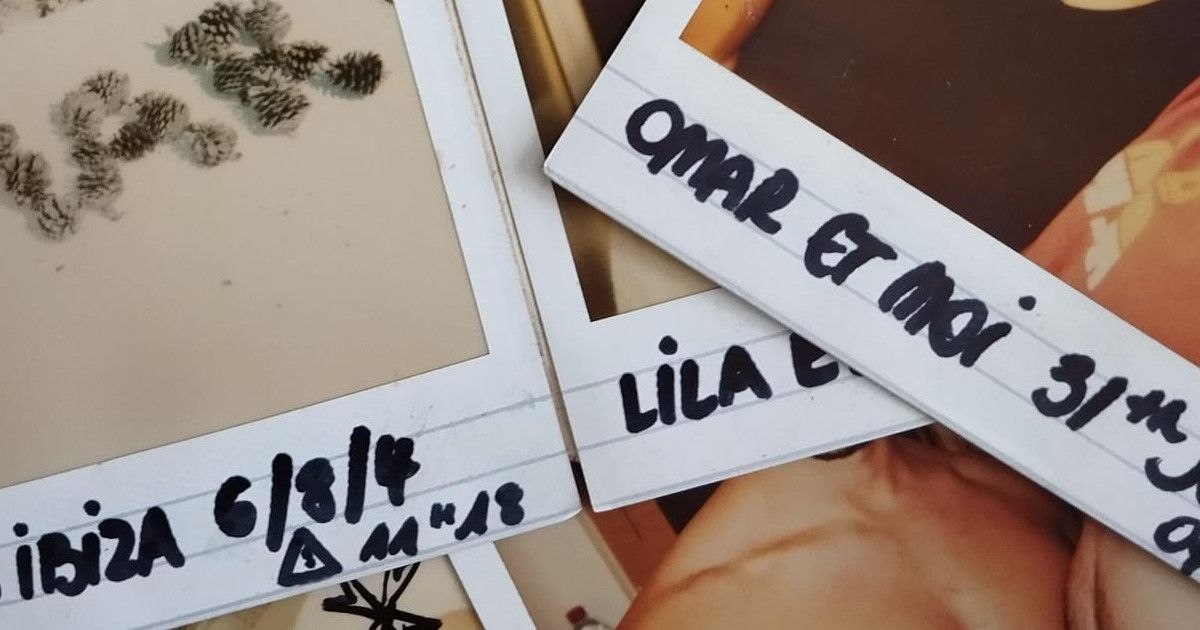 IBIZA 6/8/4
⚠ 11H18
LILA E
OMAR ET MOI 31th